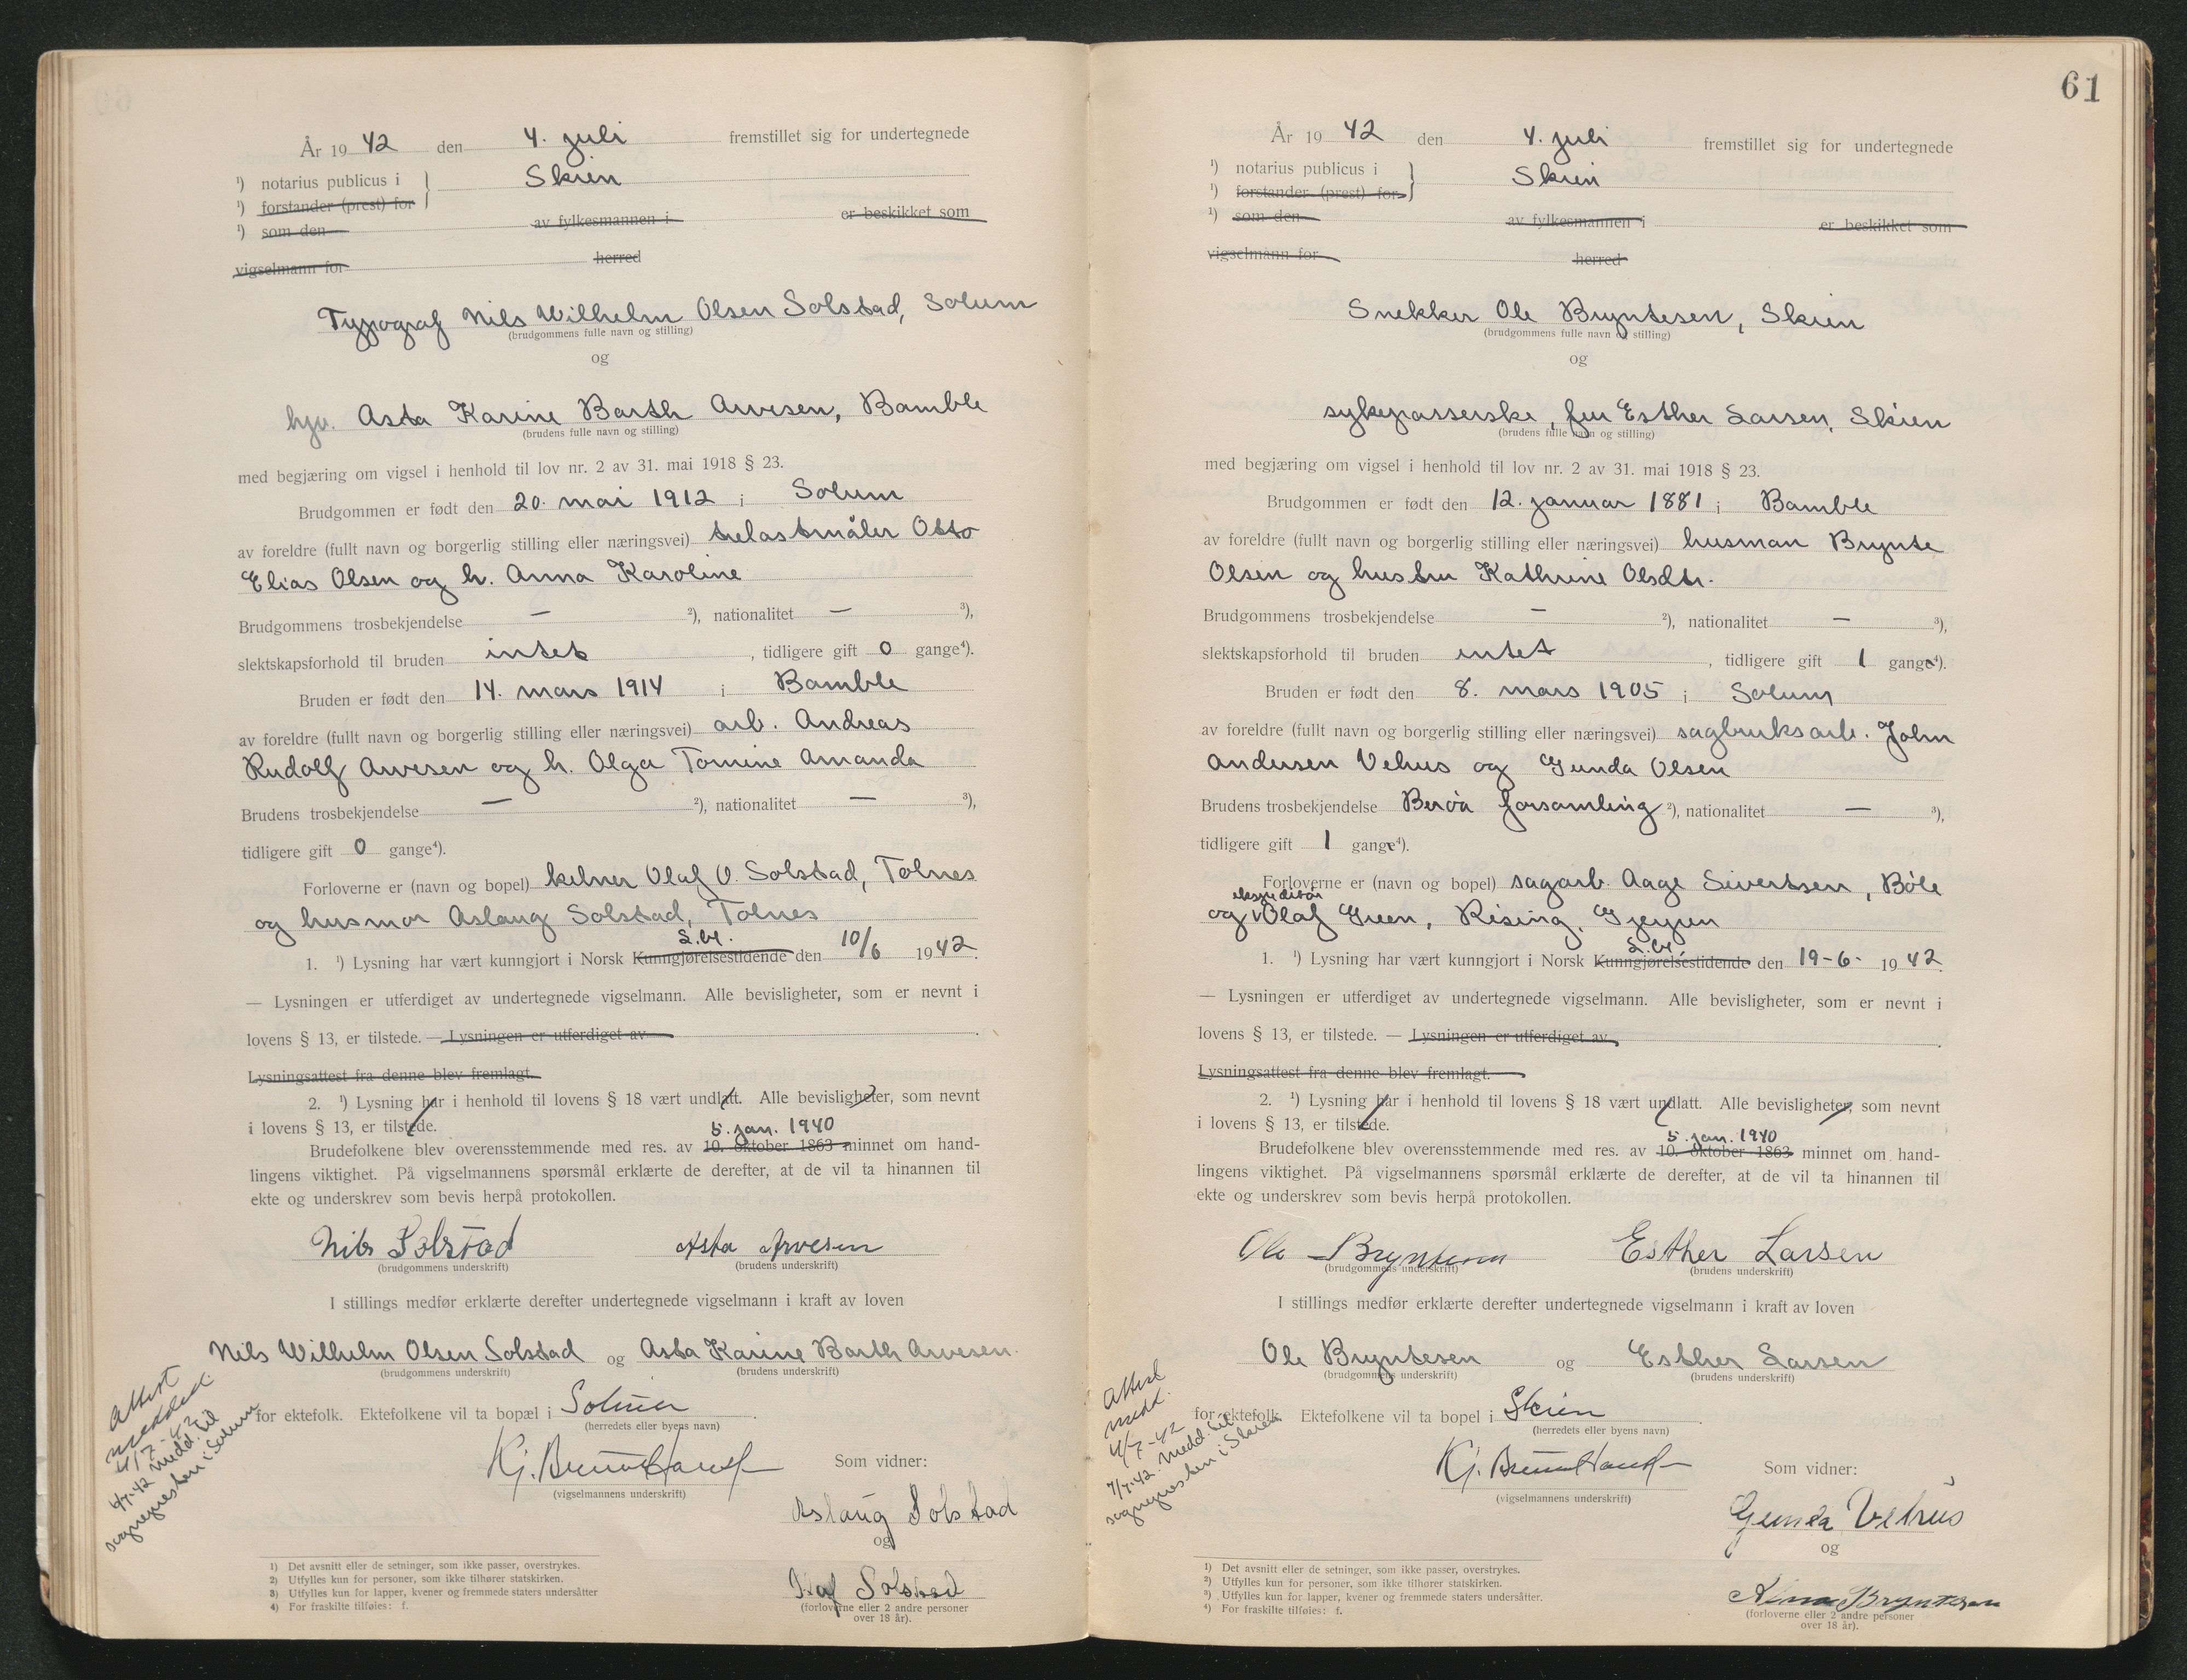 År 19 42 den 4. juli fremstillet sig for undertegnede
¹) notarius publicus i } Skien
¹) forstander (prest) for
¹) som den av fylkesmannen i er beskikket som
vigselmann for herred
Typograf Nils Wilhelm Olsen Solstad, Solum
(brudgommens fulle navn og stilling)
og
hjv. Asta Karine Barth Arvesen, Bamble
(brudens fulle navn og stilling)
med begjæring om vigsel i henhold til lov nr. 2 av 31. mai 1918 § 23.
Brudgommen er født den 20. mai 1912 i Solum
av foreldre (fullt navn og borgerlig stilling eller næringsvei) trelastmåler Otto
Elias Olsen og h. Anna Karoline
Brudgommens trosbekjendelse — ²), nationalitet — ³),
slektskapsforhold til bruden intet , tidligere gift 0 gange⁴).
Bruden er født den 14. mars 1914 i Bamble
av foreldre (fullt navn og borgerlig stilling eller næringsvei) arb. Andreas
Rudolf Arvesen og h. Olga Tomine Amanda
Brudens trosbekjendelse — ²), nationalitet — ³),
tidligere gift 0 gange⁴).
Forloverne er (navn og bopel) kelner Olaf O. Solstad, Tolnes
og husmor Aslaug Solstad, Tolnes
L.bl.
1. ¹) Lysning har vært kunngjort i Norsk Kunngjørelsestidende den 10/6 1942.
— Lysningen er utferdiget av undertegnede vigselmann. Alle bevisligheter, som er nevnt i
lovens § 13, er tilstede. — Lysningen er utferdiget av .
Lysningsattest fra denne blev fremlagt.
2. ¹) Lysning har i henhold til lovens § 18 vært undlatt. Alle bevisligheter, som nevnt
i lovens § 13, er tilstede.
5. jan. 1940
Brudefolkene blev overensstemmende med res. av 10. oktober 1863 minnet om hand-
lingens viktighet. På vigselmannens spørsmål erklærte de derefter, at de vil ta hinannen til
ekte og underskrev som bevis herpå protokollen.
Nils Solstad Asta Arvesen
(brudgommens underskrift) (brudens underskrift)
I stillings medfør erklærte derefter undertegnede vigselmann i kraft av loven
Nils Wilhelm Olsen Solstad og Asta Karine Barth Arvesen.
(brudgommens underskrift) (brudens underskrift)
for ektefolk. Ektefolkene vil ta bopæl i Solum .
(herredets eller byens navn)
attest
meddel.
4/7-42
4/7-42 medd. til
sognepresten i Solum
Kj. Bruun Hanssen Som vidner:
(vigselmannens underskrift)
Aslaug Solstad
og
Olaf Solstad
(forloverne eller 2 andre personer
over 18 år).
1) Det avsnitt eller de setninger, som ikke passer, overstrykes.
2) Utfylles kun for personer, som ikke tilhører statskirken.
3) Utfylles kun for lapper, kvener og fremmede staters undersåtter
4) For fraskilte tilføies: f.
61
År 19 42 den 4. juli fremstillet sig for undertegnede
¹) notarius publicus i } Skien
¹) forstander (prest) for
¹) som den av fylkesmannen i er beskikket som
vigselmann for herred
Snekker Ole Bryntesen, Skien
(brudgommens fulle navn og stilling)
og
sykepasserske, fru Esther Larsen, Skien
(brudens fulle navn og stilling)
med begjæring om vigsel i henhold til lov nr. 2 av 31. mai 1918 § 23.
Brudgommen er født den 12. januar 1881 i Bamble
av foreldre (fullt navn og borgerlig stilling eller næringsvei) husman Brynte
Olsen og hustru Kathrine Olsdtr.
Brudgommens trosbekjendelse — ²), nationalitet — ³),
slektskapsforhold til bruden intet , tidligere gift 1 gange⁴).
Bruden er født den 8. mars 1905 i Solum
av foreldre (fullt navn og borgerlig stilling eller næringsvei) sagbruksarb. John
Andersen Vehus og Gunda Olsen
Brudens trosbekjendelse Berøa forsamling ²), nationalitet — ³),
tidligere gift 1 gange⁴).
Forloverne er (navn og bopel) sagarb. Aage Sivertsen, Bøle
ekspeditør
og Olaf Green, Rising, Gjerpen
L.bl.
1. ¹) Lysning har vært kunngjort i Norsk Kunngjørelsestidende den 19-6- 1942.
— Lysningen er utferdiget av undertegnede vigselmann. Alle bevisligheter, som er nevnt i
lovens § 13, er tilstede. — Lysningen er utferdiget av .
Lysningsattest fra denne blev fremlagt.
2. ¹) Lysning har i henhold til lovens § 18 vært undlatt. Alle bevisligheter, som nevnt
i lovens § 13, er tilstede.
5. jan. 1940
Brudefolkene blev overensstemmende med res. av 10. oktober 1863 minnet om hand-
lingens viktighet. På vigselmannens spørsmål erklærte de derefter, at de vil ta hinannen til
ekte og underskrev som bevis herpå protokollen.
Ole Bryntesen Esther Larsen
(brudgommens underskrift) (brudens underskrift)
I stillings medfør erklærte derefter undertegnede vigselmann i kraft av loven
Ole Bryntesen og Esther Larsen
(brudgommens underskrift) (brudens underskrift)
for ektefolk. Ektefolkene vil ta bopel i Skien
(herredets eller byens navn)
attest
medd.
4/7-42
7/7-42. Medd. til
sognepresten i Skien
Kj. Bruun Hanssen Som vidner:
(vigselmannens underskrift)
Gunda Vehus
og
Bryntesen
(forloverne eller 2 andre personer
over 18 år).
1) Det avsnitt eller de setninger, som ikke passer, overstrykes.
2) Utfylles kun for personer, som ikke tilhører statskirken.
3) Utfylles kun for lapper, kvener og fremmede staters undersåtter.
4) For fraskilte tilføies: f.